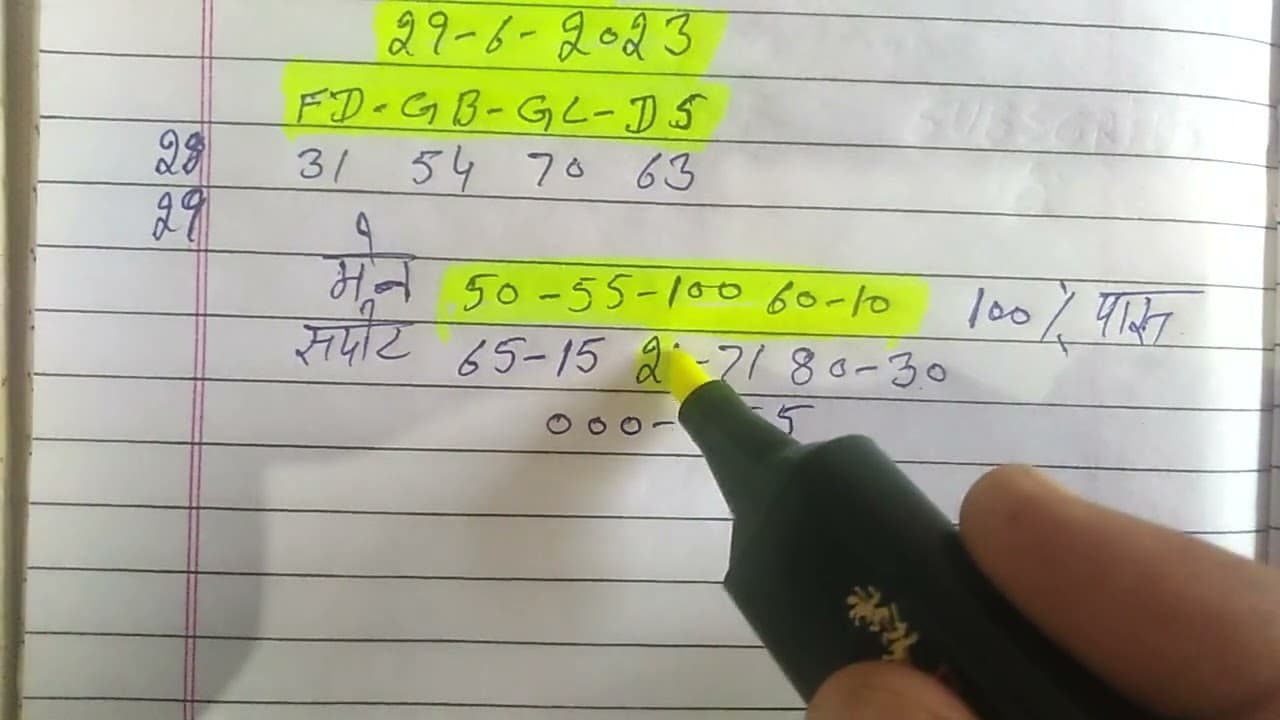 29-6-2023
FD-GB-GL-DS
28 31 54 70 63
29
मेन 50-55-100 60-10 100% पास
सपोट 65-15 -71 80-30
000- 5